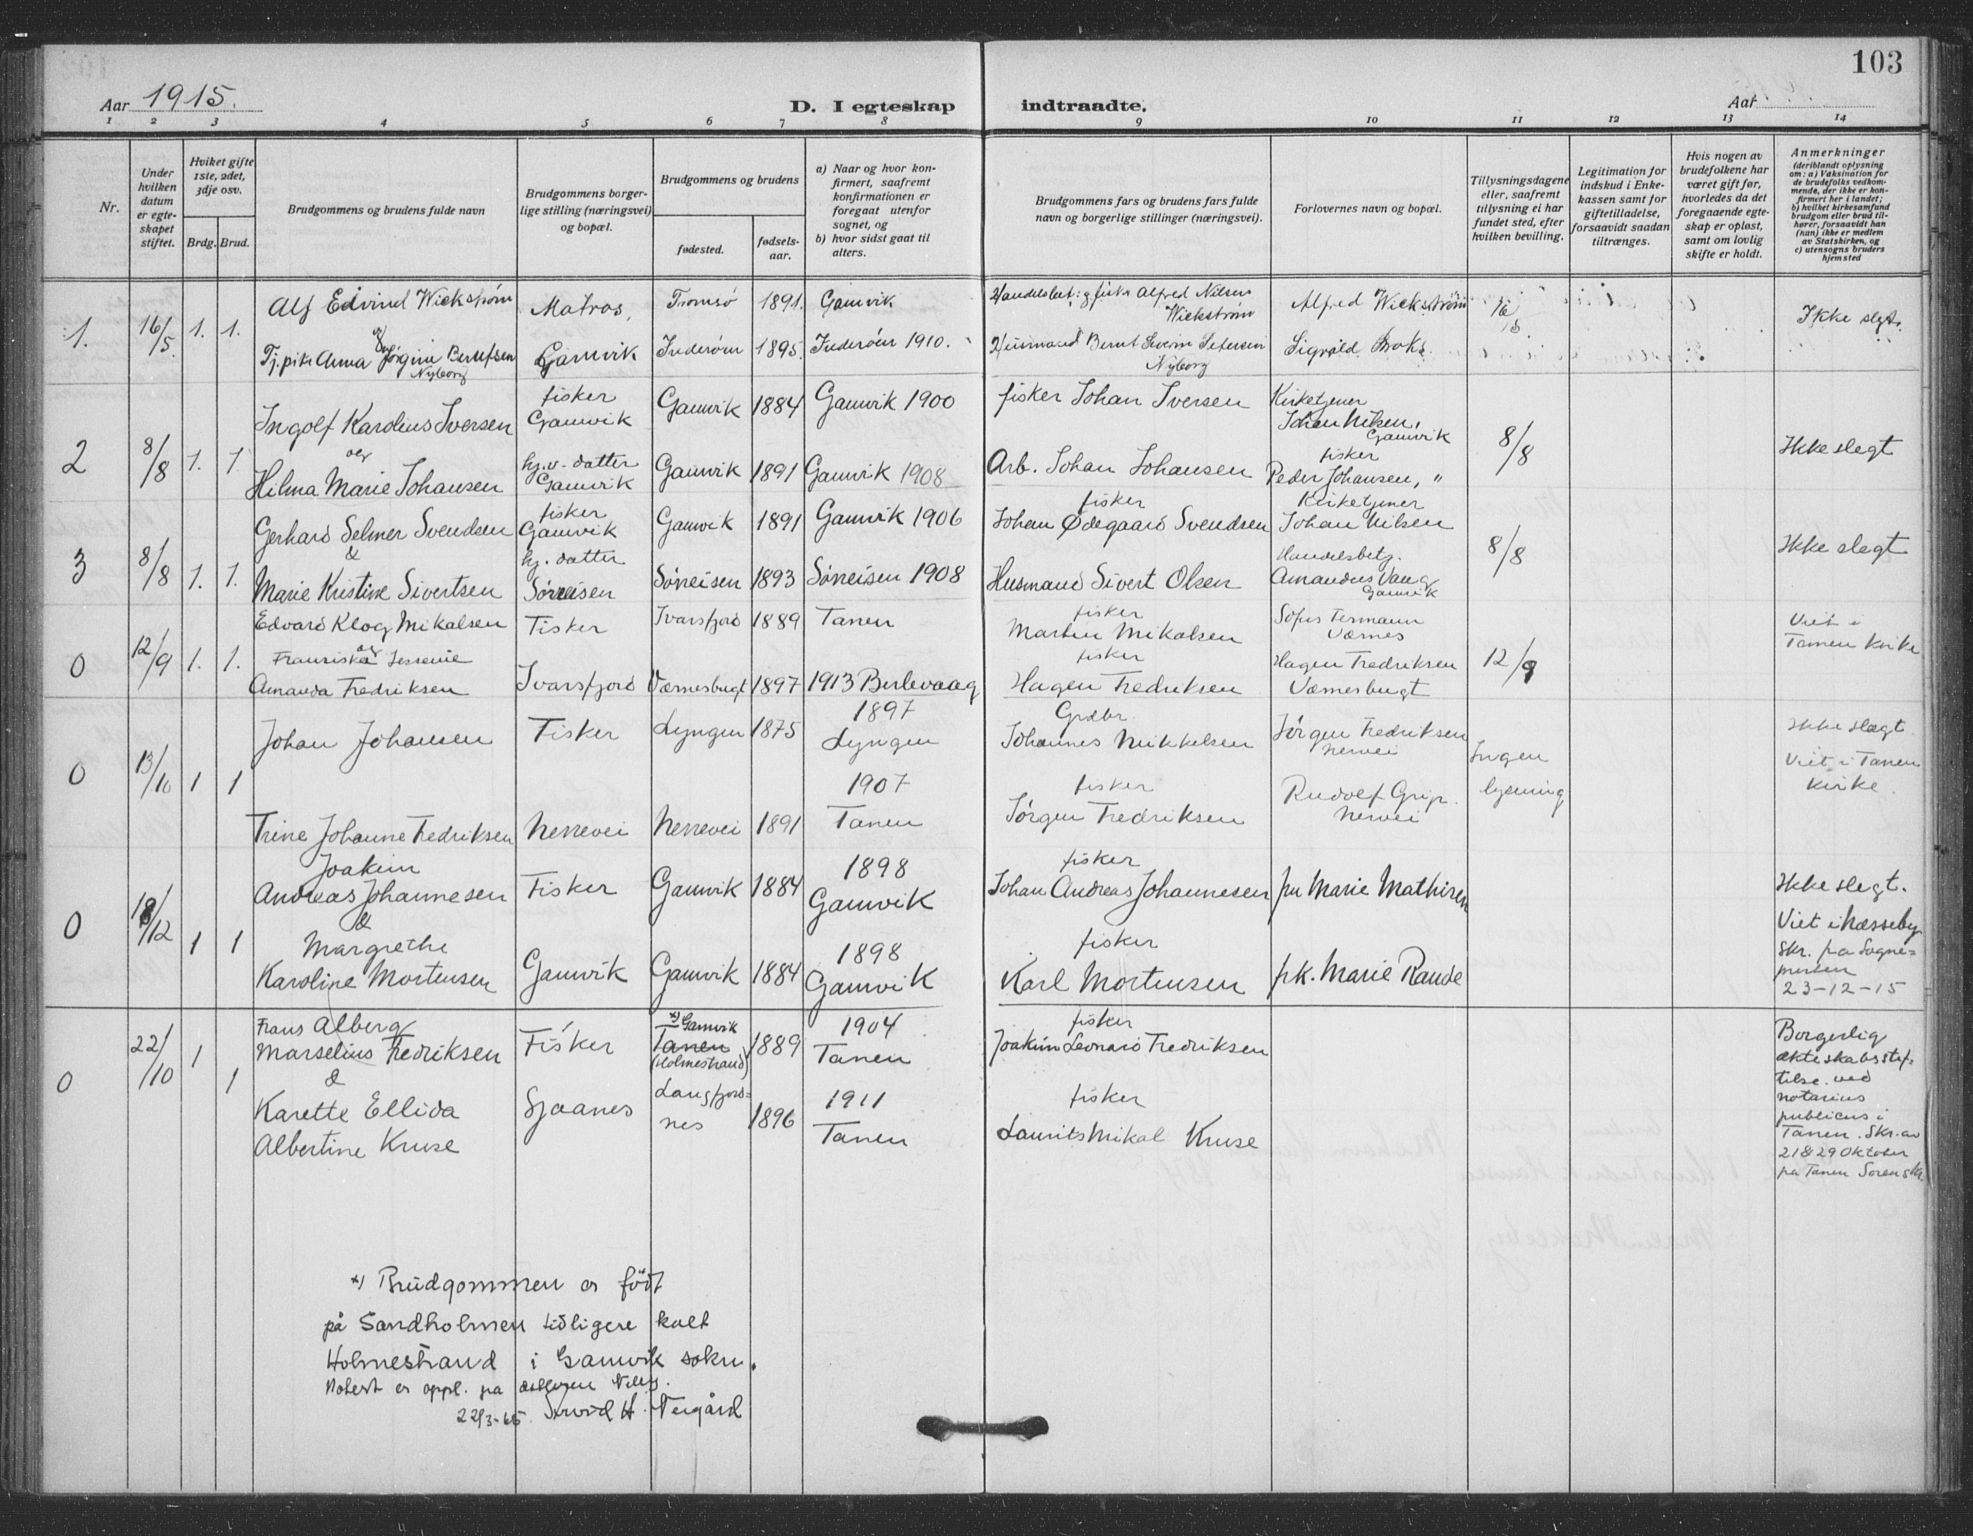 103
Aar 1915.
D. I egteskap indtraadte.
Aar
1 2 3 4 5 6 7 8 9 10 11 12 13 14
Nr.
Under hvilken datum er egte-skapet stiftet.
Hviket gifte 1ste, 2det, 3dje osv.
Brdg. Brud.
Brudgommens og brudens fulde navn
Brudgommens borger-lige stilling (næringsvei) og bopæl.
Brudgommens og brudens
fødested.
fødsels-aar.
a) Naar og hvor kon-firmert, saafremt konfirmationen er foregaat utenfor sognet, og
b) hvor sidst gaat til alters.
Brudgommens fars og brudens fars fulde navn og borgerlige stillinger (næringsvei).
Forlovernes navn og bopæl.
Tillysningsdagene eller, saafremt tillysning ei har fundet sted, efter hvilken bevilling.
Legitimation for indskud i Enke-kassen samt for giftetilladelse, forsaavidt saadan tiltrænges.
Hvis nogen av brudefolkene har været gift før, hvorledes da det foregaaende egte-skap er opløst, samt om lovlig skifte er holdt.
Anmerkninger
(deriblandt oplysning om: a) Vaksination for de brudefolks vedkom-mende, der ikke er kon-firmert her i landet; b) hvilket kirkesamfund brudgom eller brud til-hører, forsaavidt han (hun) ikke er medlem av Statskirken, og c) utensogns bruders hjemsted
1. 16/5 1. 1. Alf Edvind Wickstrøm Matros, Tromsø 1891. Gamvik Alfred Nilsen Wickstrøm Alfred Wickstrøm Ikke slegt.
og
Tj.pike Anna Jørgine Berntsen Nyborg Gamvik Inderøen 1895. Inderøen 1910. Husmand Bernt Petersen Nyborg Sigvald
2 8/8 1. 1. Ingolf Karolius Iversen fisker Gamvik Gamvik 1884 Gamvik 1900 fisker Johan Iversen Kirketjener Johan Nilsen, Gamvik 8/8 Ikke slegt
og
Hilma Marie Johansen hj.v. datter Gamvik Gamvik 1891 Gamvik 1908 Arb. Johan Johansen fisker Peder Johansen, "
3 8/8 1. 1. Gerhard Selmer Svendsen fisker Gamvik Gamvik 1891 Gamvik 1906 fisker Johan Ødegaard Svendsen Kirketjener Johan Nilsen 8/8 Ikke slegt
&
Marie Kristine Sivertsen hj. datter Sørreisen Sørreisen 1893 Sørreisen 1908 Husmand Sivert Olsen Handelsbetj. Amandus Vang Gamvik
0 12/9 1. 1. Edvard Klog Mikalsen Fisker Ivarsfjord 1889 Tanen fisker Martin Mikalsen SofusVærnes 12/9 Viet i Tanen kirke
og
Fransiska Jessenie Amanda Fredriksen Ivarsfjord Værnesbugt 1897 1913 Berlevaag fisker Hagen Fredriksen Hagen Fredriksen Værnesbugt
0 13/10 1 1 Johan Johansen Fisker Lyngen 1875 1897 Lyngen Grdbr. Johannes Mikkelsen Jørgen Fredriksen Nervei Ingen lysning Ikke slægt Viet i Tanen Kirke.
Trine Johanne Fredriksen Nerrevei Nerrevei 1891 1907 Tanen fisker Jørgen Fredriksen Rudolf Grip. Nervei
0 18/12 1 1 Joakim Andreas Johannesen Fisker Gamvik 1884 1898 Gamvik fisker Johan Andreas Johannesen fru Marie Mathisen Ikke slegt. Viet i Næsseby Skr. fra Sogne=presten 23-12-15
&
Margrethe Karoline Mortensen Gamvik Gamvik 1884 1898 Gamvik fisker Karl Mortensen frk. Marie Raude
0 22/10 1 1 Frans Alberg Marselius Fredriksen Fisker x) Gamvik Tanen (Holmestrand) 1889 1904 Tanen fisker Joakim Leonard Fredriksen
Borgerlig ækteskabsstif-telse ved notarius publicus i Tanen. Skr. av 21 & 29 Oktober fra Tanen Sorenskr.
&
Karette Ellida Albertine Kruse Sjaanes Langfjord=nes 1896 1911 Tanen fisker Laurits Mikal Kruse
x) Brudgommen er født
på Sandholmen tidligere kalt
Holmestrand i Gamvik sokn.
Notert er oppl. fra
22/3-65. H. Neigård